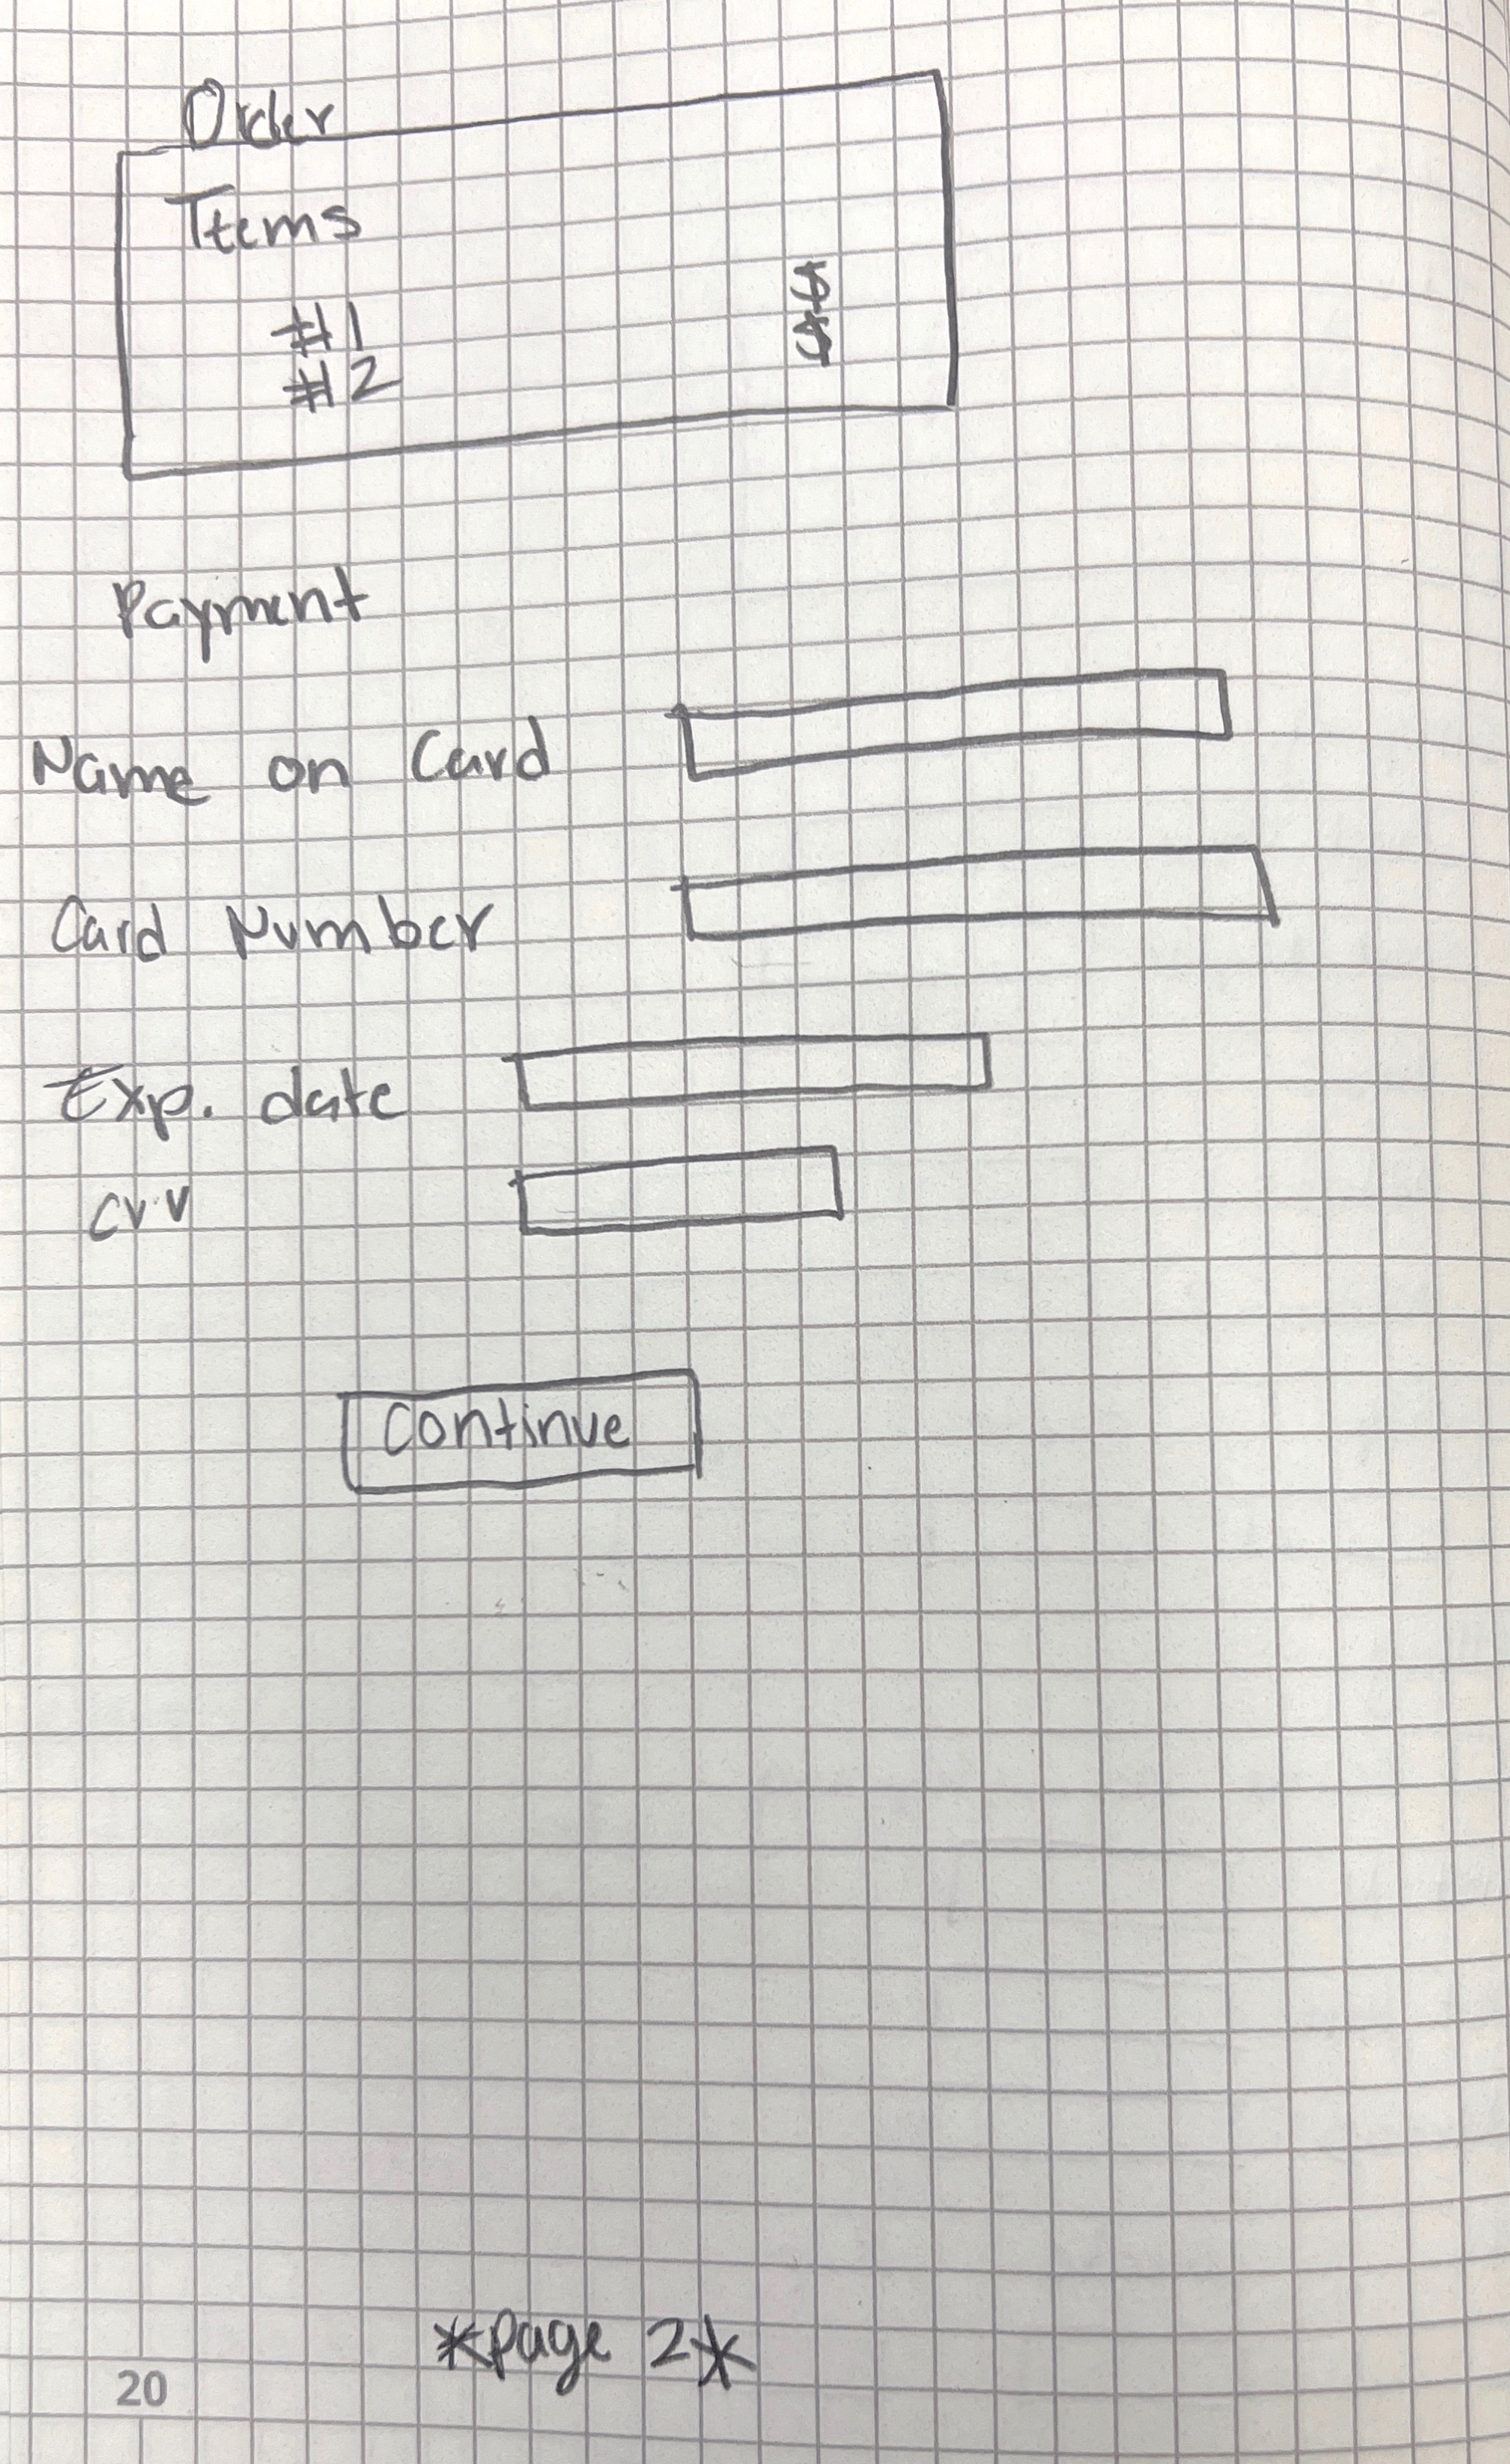 Order
Items
#1 $
#2 $
Payment
Name on Card
Card Number
Exp. date
CVV
Continue
*page 2*
20